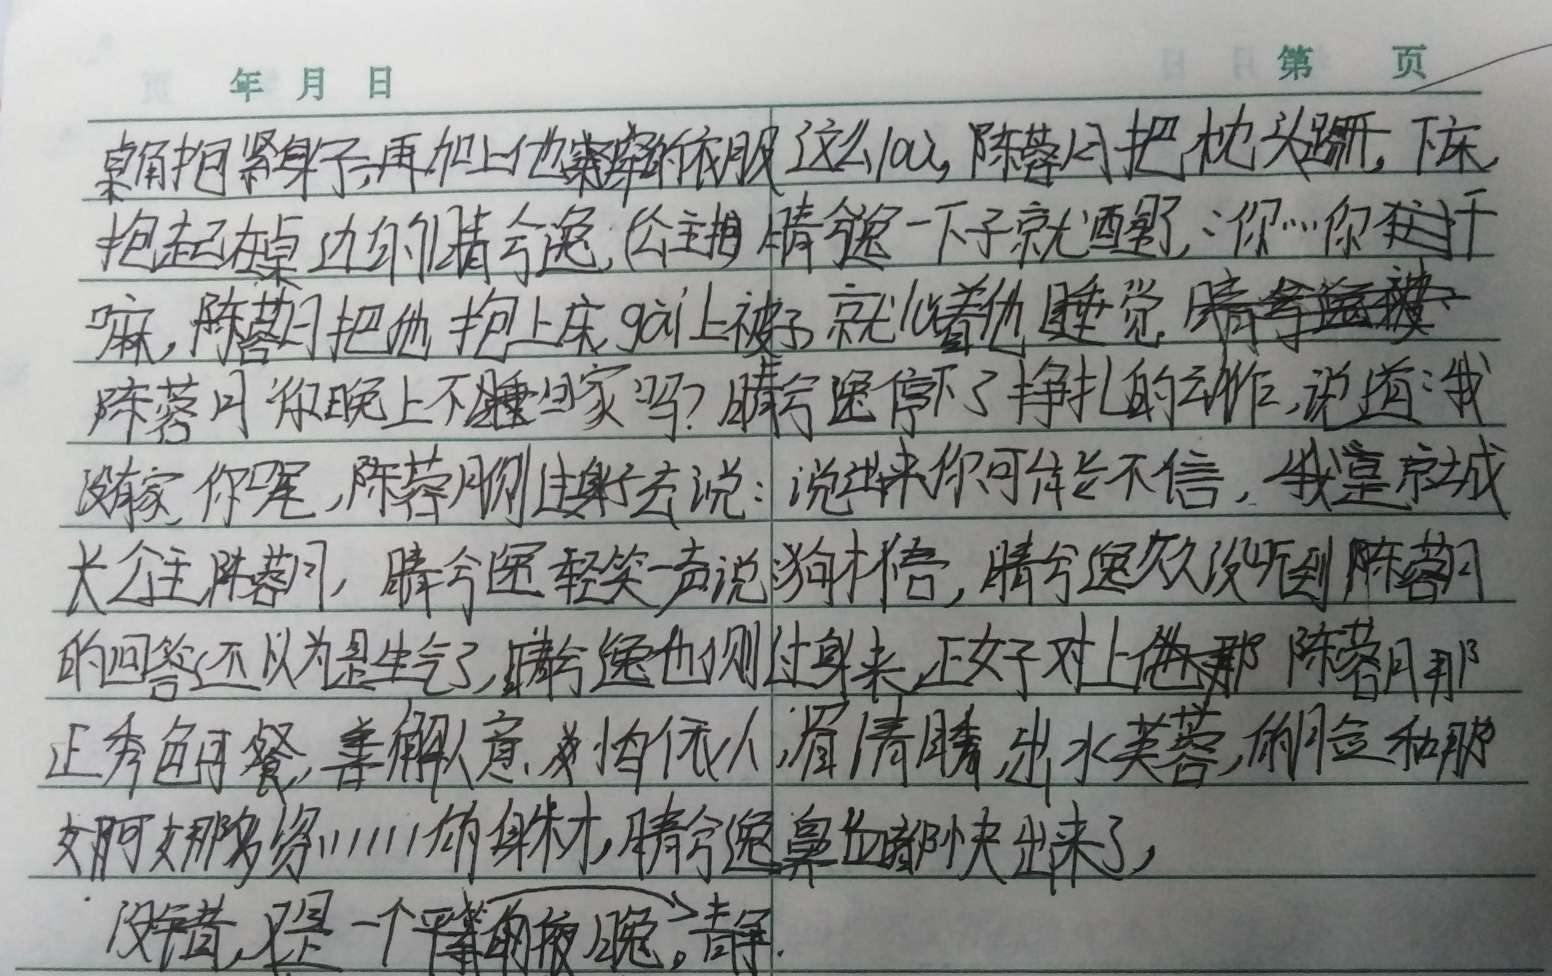 年 月 日 第 页
桌角抱紧身子,再加上他的衣服这么lou,陈蓉月把枕头踢开,下床,
抱起在桌边的晴兮逸,(公主抱)晴兮逸一下子就酒醒了,:你……你干
嘛,陈蓉月把他抱上床gai上被子就搂着他睡觉
陈蓉月你晚上不回家吗?晴兮逸停下了挣扎的动作,说道:我
没有家,你呢,陈蓉月侧过身子去说:说出来你可能不信,我是京城
长公主陈蓉月,晴兮逸轻笑一声说:狗才信,晴兮逸久久没听到陈蓉月
的回答还以为是生气了,晴兮逸也侧过身来,正好对上陈蓉月那
正秀色可餐,善解人意,小鸟依人,眉清目秀,出水芙蓉,的脸和那
婀娜多姿……的身材,晴兮逸鼻血都快出来了,
没错,又是一个平静的夜晚。